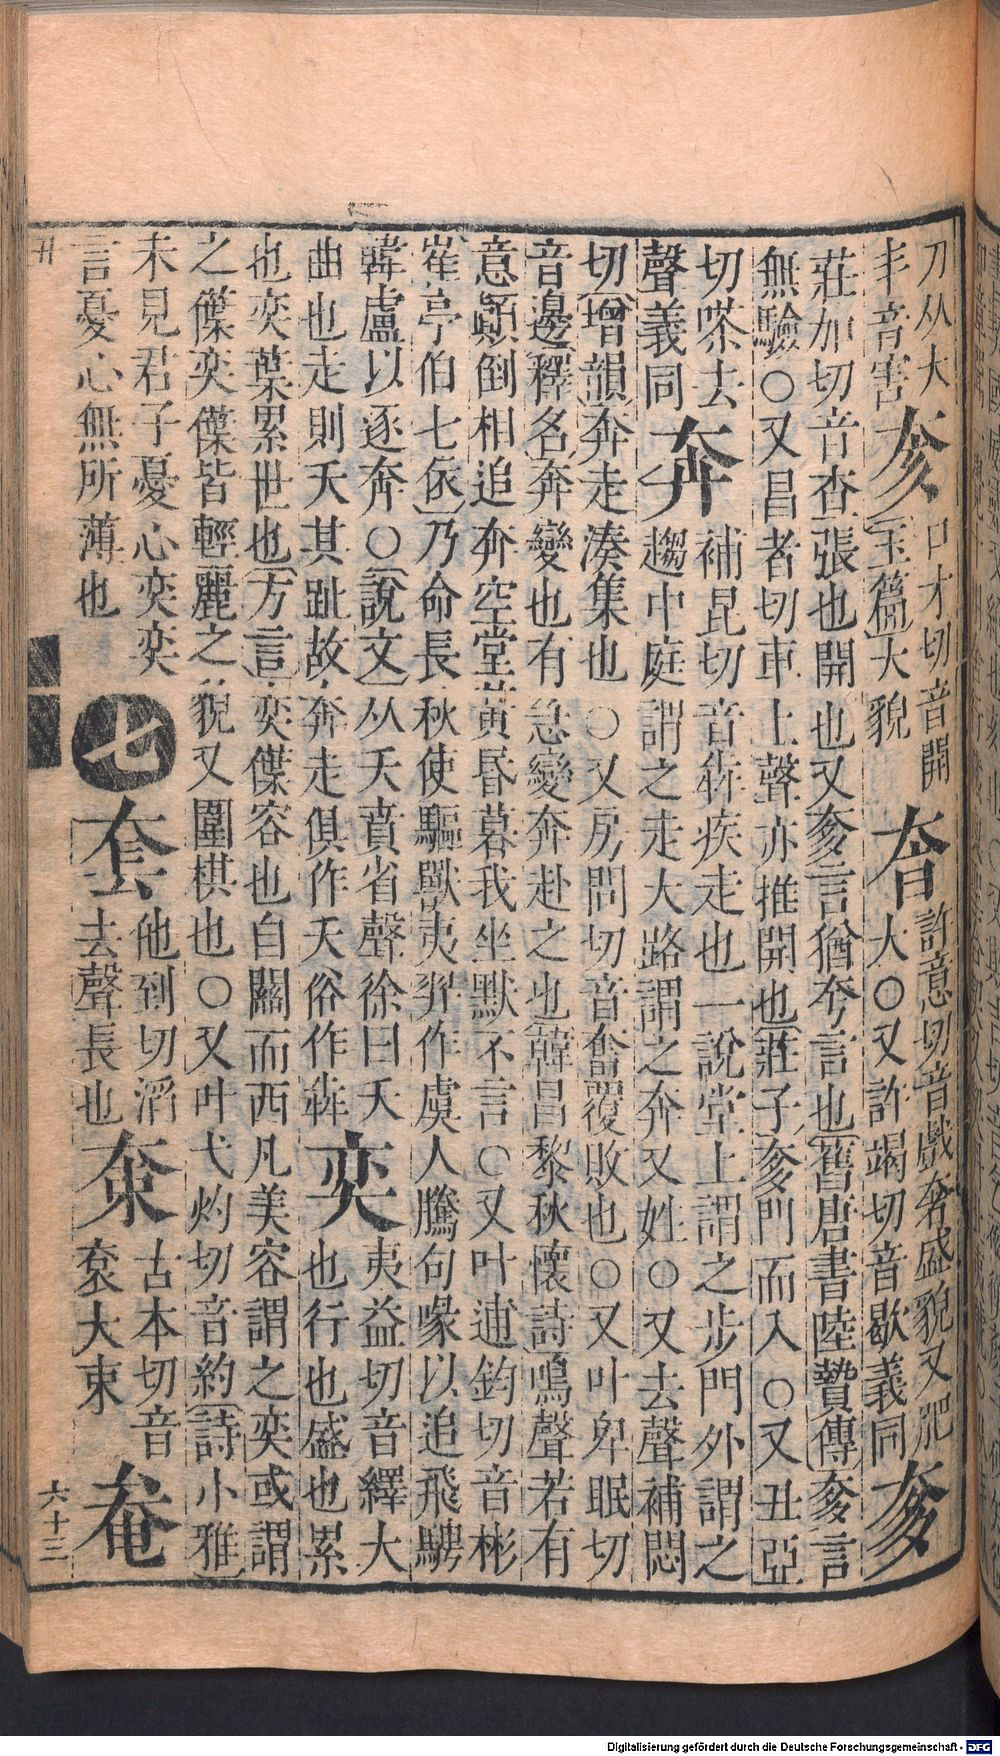 刀从大
丯音害
奒
口才切音開
玉篇大貌
許意切音戲奢盛貌又肥
大○又許竭切音歇義同
奓
莊加切音查張也開也又奓言猶夸言也舊唐書陸贄傳奓言
無驗○又昌者切車上聲亦推開也莊子奓門而入○又丑亞
切嗏去
聲義同
奔
補昆切音犇疾走也一說堂上謂之步門外謂之
趨中庭謂之走大路謂之奔又姓○又去聲補悶
切增韻奔走湊集也○又房問切音奮覆敗也○又叶卑眠切
音邊釋名奔變也有急變奔赴之也韓昌黎秋懷詩鳴聲若有
意顚倒相追奔空堂黃昏暮我坐默不言○又叶逋鈞切音彬
崔亭伯七依乃命長秋使驅獸夷羿作虞人騰句喙以追飛騁
韓盧以逐奔○說文从夭賁省聲徐曰夭
曲也走則夭其趾故奔走俱作夭俗作犇
奕
夷益切音繹大
也行也盛也累
也奕葉累世也方言奕僷容也自關而西凡美容謂之奕或謂
之僷奕僷皆輕麗之貌又圍棋也○又叶弋灼切音約詩小雅
未見君子憂心奕奕
言憂心無所薄也
七
套
他到切滔
去聲長也
古本切音
袞大束
奄
六十三
Digitalisierung gefördert durch die Deutsche Forschungsgemeinschaft - DFG